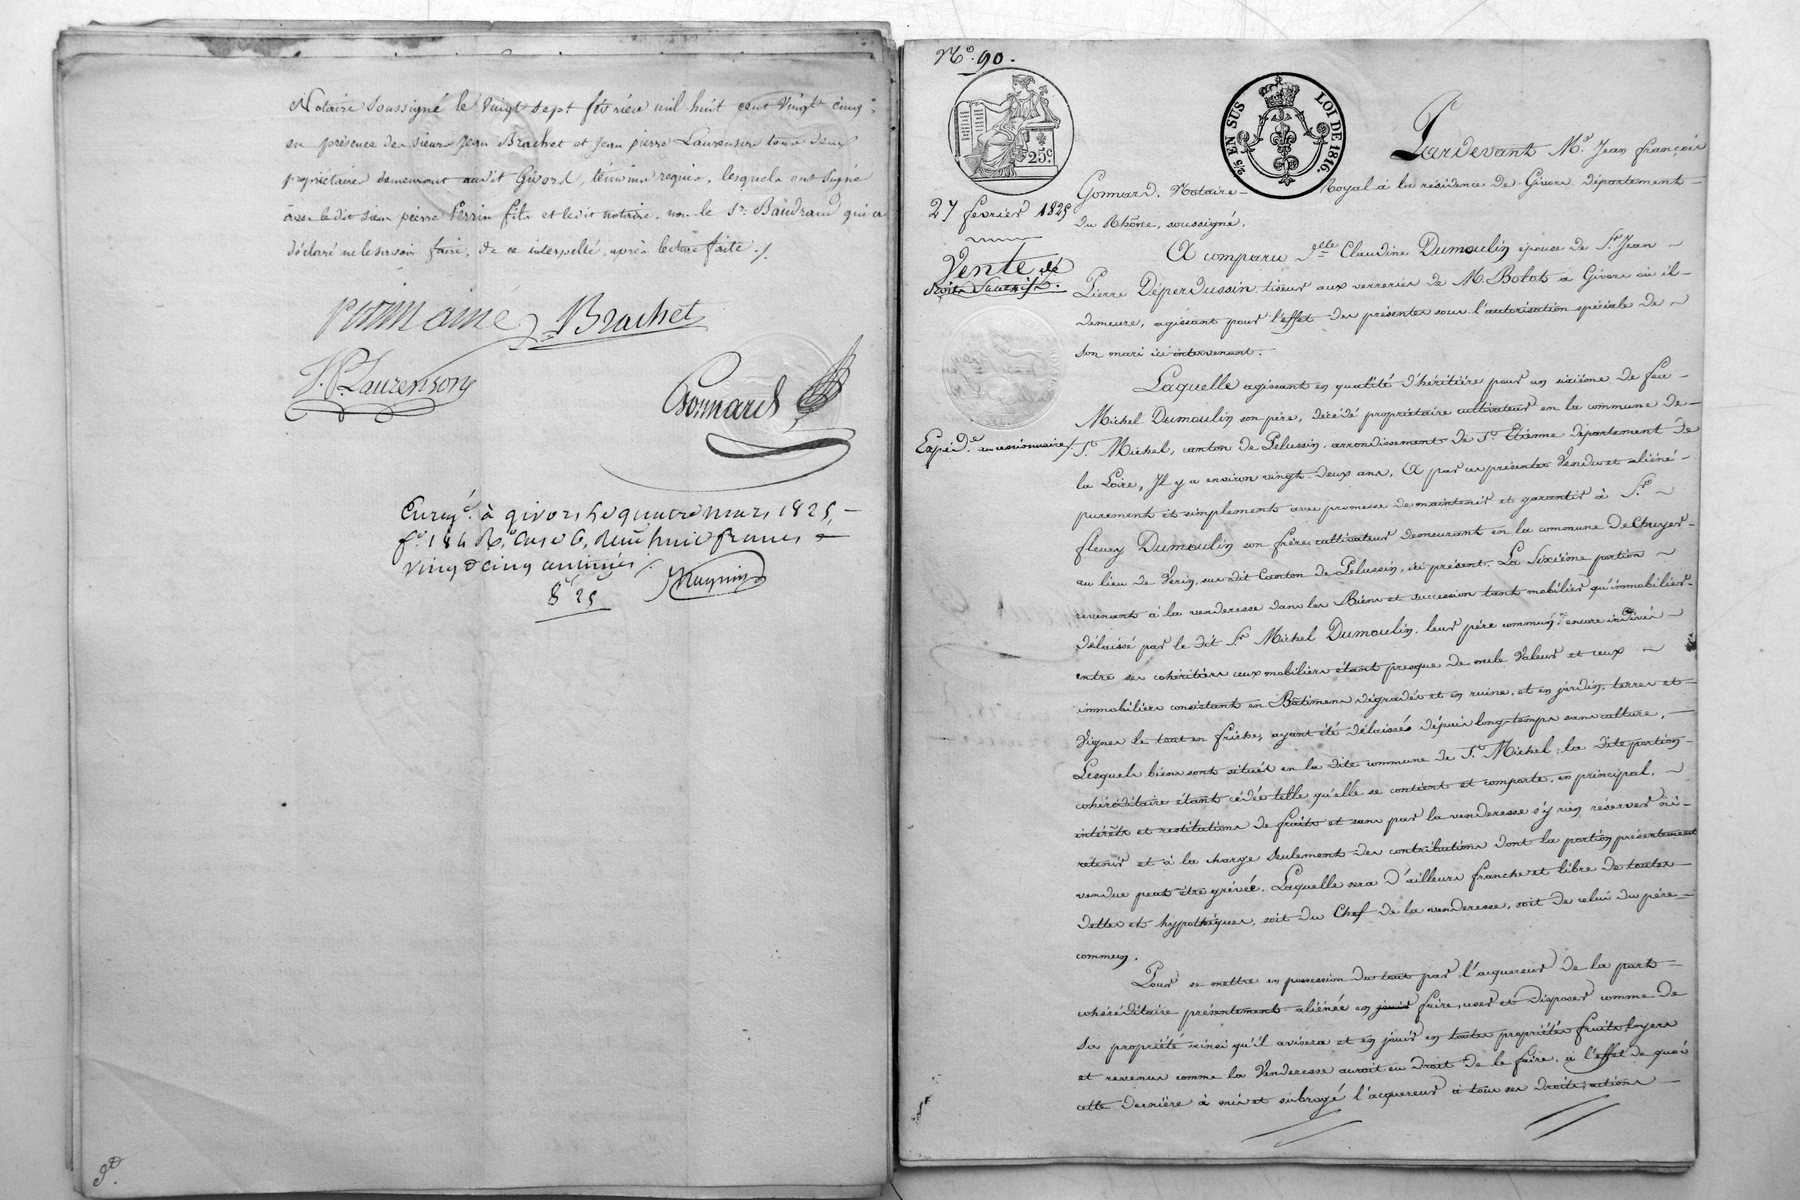 Notaire soussigné le vingt sept février mil huit cent vingt cinq,
en présence des sieurs Jean Brachet et Jean pierre Laurenson tous deux
propriétaires demeurant audit Givors, témoins requis, lesquels ont signé
avec le dit sieur pierre Perrin fils et le dit notaire, non le Sr. Baudrand qui a
déclaré ne le savoir faire, de ce interpellé, après lecture faite ./.
Brachet
J. P. Laurenson
Gonnard
Enregé. à givors le quatre mars 1825,
fo. 184 Ro. Case 6, reçu huit francs
vingt cinq centimes
8f 25
No. 90.
25c
25 EN SUS
LOI DE 1816.
27 février 1825
Vente de
Expéd.
Pardevant Me. Jean françois
Gonnard, Notaire Royal à la résidence de Givors département
du Rhône, soussigné.
A comparu Delle Claudine Dumoulin épouse de Sr. Jean
Pierre Déperdussin tiseur aux verreries de M. Bolot à Givors où il
demeure, agissant pour l'effet des présentes sous l'autorisation spéciale de
son mari ici intervenant.
Laquelle agissant en qualité d'héritière pour un sixième de feu
Michel Dumoulin son père, décédé propriétaire cultivateur en la commune de
St. Michel, canton de Pelussin, arrondissement de St. Etienne département de
la Loire, Il y a environ vingt deux ans, A par ces présentes Vendu et aliéné
purement et simplement avec promesse de maintenir et garantir à Sr.
fleury Dumoulin son frère, cultivateur demeurant en la commune de Chuyer
au lieu de Verin, sus dit Canton de Pelussin, ici présent. La Sixième portion
revenant à la venderesse dans les Biens et succession tant mobilier qu'immobilier
délaissé par le dit Sr. Michel Dumoulin, leur père commun, encore indivis
entre ses cohéritiers ceux mobiliers étant presque de nule Valeur et ceux
immobiliers consistant en Bâtimens dégradés et en ruine, et en jardin, terres et
Vignes le tout en friche, ayant été délaissés dépuis long-temps sans culture,
Lesquels biens sont situés en la dite commune de St. Michel; la dite portion
cohéréditaire étant cédée telle qu'elle se contient et comporte, en principal,
intérêts et restitutions de fruits et sans par la venderesse s'y rien réserver ni
retenir et à la charge seulement des contributions dont la portion présentement
vendue peut être grévée. Laquelle sera d'ailleurs franche et libre de toutes
dettes et hypothèques, soit du Chef de la venderesse, soit de celui du père
commun.
Pour se mettre en possession du tout par l'acquereur de la part
cohéréditaire présentement aliénée en jouir faire, user et disposer comme de
sa propriété ainsi qu'il avisera et en jouir en toutes propriétés fruits, loyers
et revenus comme la Venderesse aurait eu droit de le faire, à l'effet de quoi
cette dernière à mis et subrogé l'acquereur à tous ses droits, actions